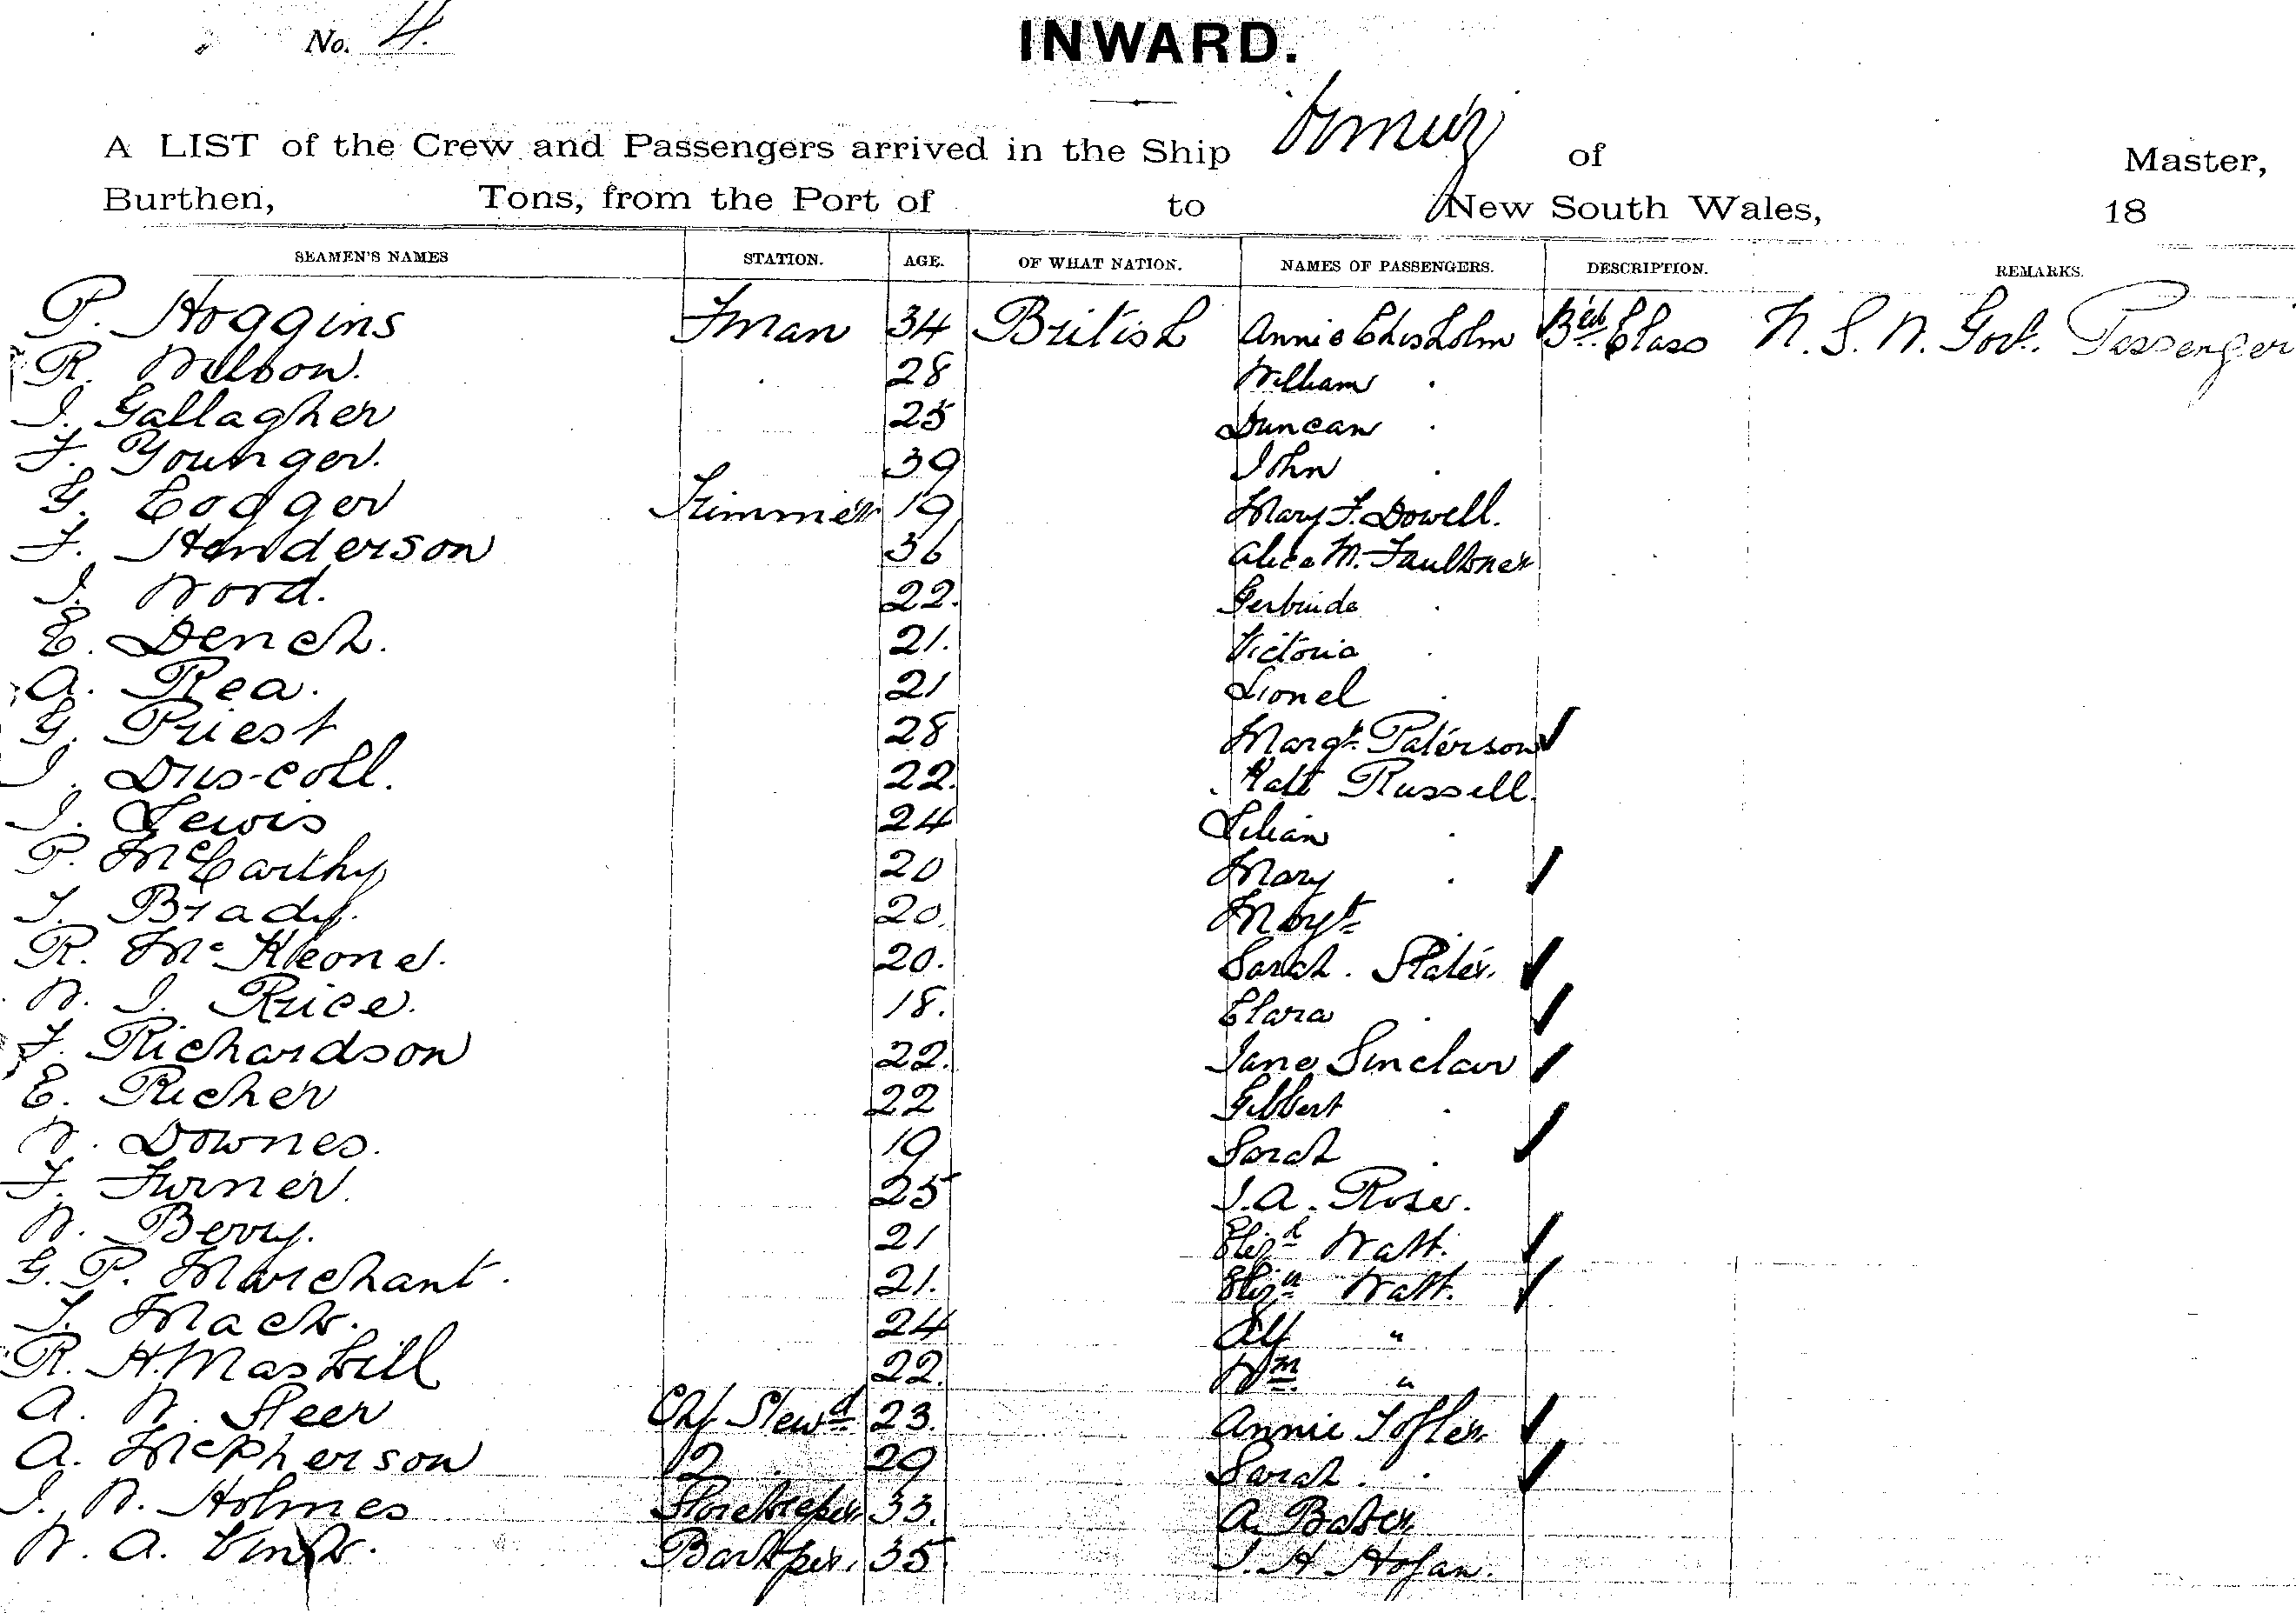 No. 4.
INWARD.
A LIST of the Crew and Passengers arrived in the Ship Ormuz of Master,
Burthen, Tons, from the Port of to New South Wales, 18
SEAMEN'S NAMES STATION. AGE. OF WHAT NATION. NAMES OF PASSENGERS. DESCRIPTION. REMARKS.
P. Hoggins Fman 34 British Annie Chisholm 3rd Class N. S. W. Govt. Passenger
R. Wilson. 28 William .
J. Gallagher 25 Duncan .
F. Younger. 39 John .
G. Cogger Trimmer 19 Mary F. Dowell.
F. Henderson 36 Alice M. Faulkner
J. Word. 22. Gertrude .
E. Dench. 21. Victoria .
A. Rea. 21 Lionel .
G. Priest 28 Margt. Paterson
J. Driscoll. 22. Russell.
J. Lewis 24 Lilian .
P. McCarthy 20 Mary .
T. Brady. 20. Margt .
R. McKeone. 20. Sarah. Slater.
W. J. Price. 18. Clara .
F. Richardson 22. Jane Sinclair
E. Richer 22 Gilbert .
W. Downes. 19 Sarah .
F. Turner. 25 J. A. Rose.
W. Berry. 21 Elizh Watt.
G. P. Marchant. 21. Eliza Watt.
T. Mack. 24 Alf "
R. H. Maskill 22. Wm "
A. W. Steer Chf Stewd 23. Annie Tofler
A. McPherson 2 . 29 Sarah. .
J. W. Holmes Storekeeper 33. A. Baker
W. A. Barkper. 35. J. H. Hogan.